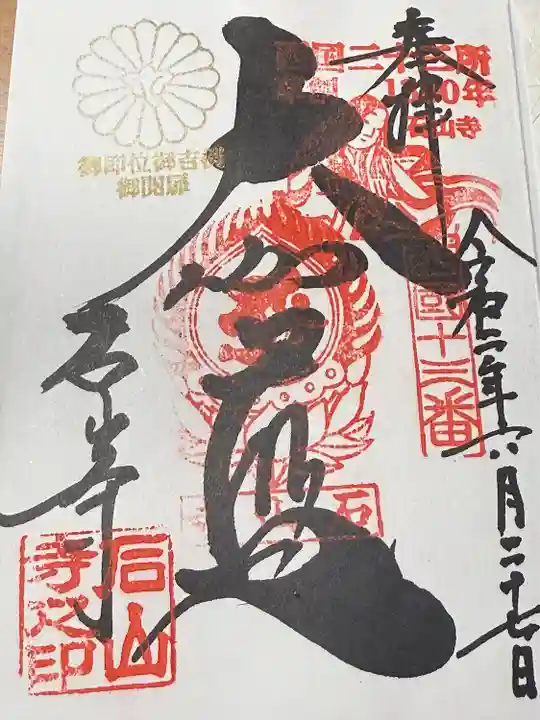 奉拝
令和二年六月二十七日
西国三十三所
1300年
石山寺
西國十三番
大伽藍
石山寺
御即位御吉祥
御開扉
石山寺之印